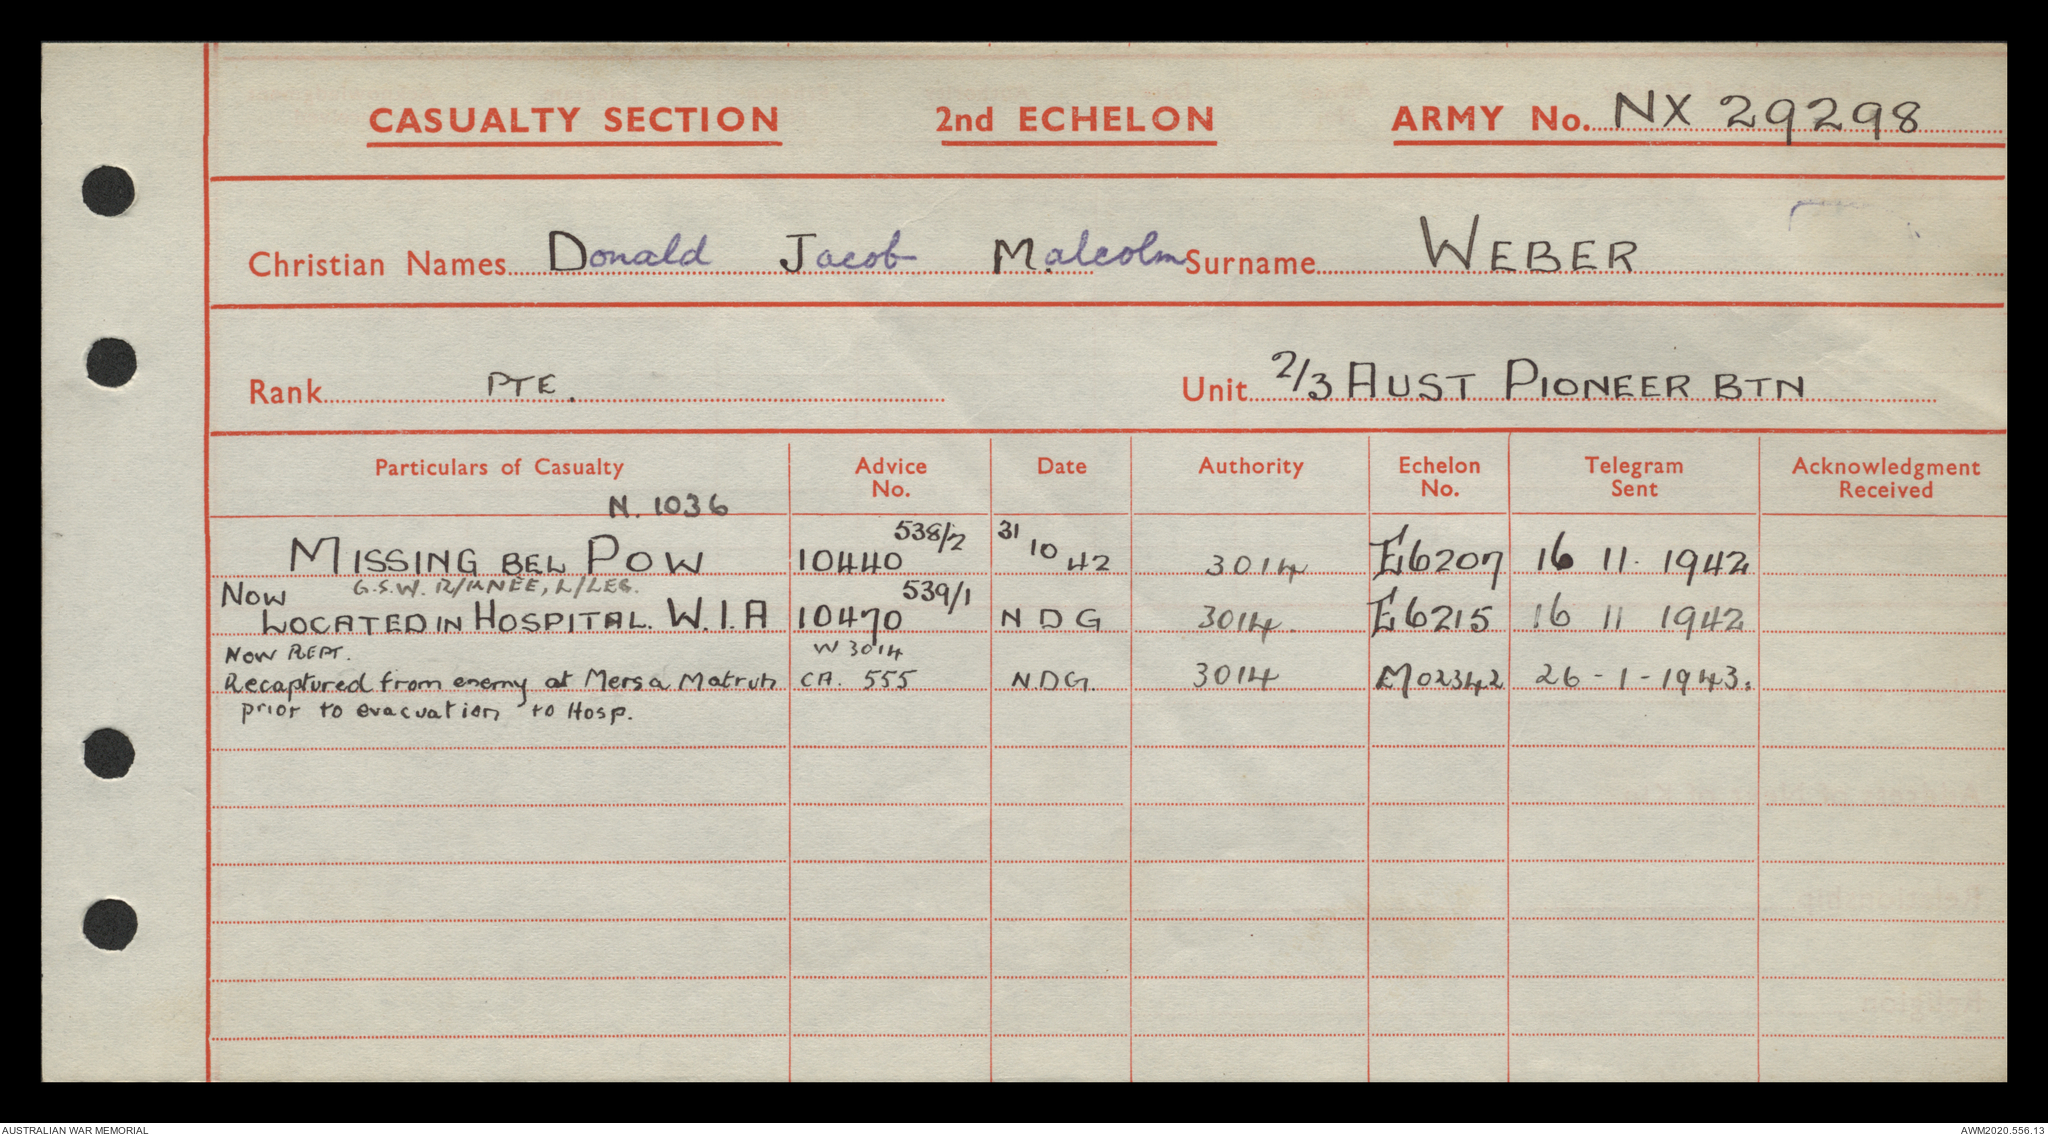 CASUALTY SECTION 2nd ECHELON ARMY No. NX 29298
Christian Names Donald Jacob Malcolm Surname WEBER
Rank PTE. Unit 2/3 AUST PIONEER BTN
Particulars of Casualty Advice No. Date Authority Echelon No. Telegram Sent Acknowledgment Received
N. 1036
MISSING BEL POW 10440 538/2 31 10 42 3014 E6207 16 11. 1942
G.S.W. R/KNEE, L/LEG.
NOW LOCATED IN HOSPITAL. W.I.A 10470 539/1 N D G 3014 E6215 16 11 1942
NOW REPT. W 3014
Recaptured from enemy at Mersa Matruh CA. 555 NDG. 3014 M02342 26-1-1943.
prior to evacuation to Hosp.
AUSTRALIAN WAR MEMORIAL AWM2020.556.13